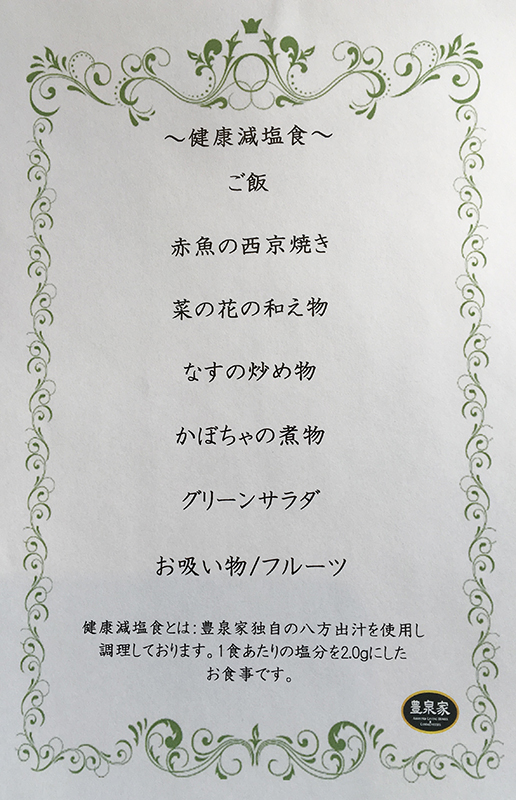 ～健康減塩食～
ご飯
赤魚の西京焼き
菜の花の和え物
なすの炒め物
かぼちゃの煮物
グリーンサラダ
お吸い物/フルーツ
健康減塩食とは：豊泉家独自の八方出汁を使用し
調理しております。1食あたりの塩分を2.0gにした
お食事です。
豊泉家